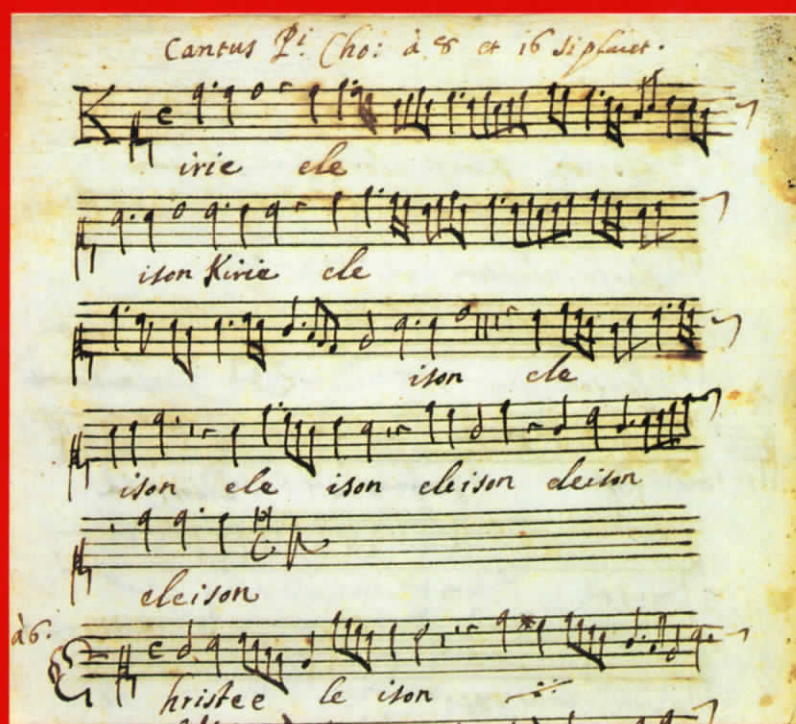 Cantus P.i Cho: à 8 et 16 si placet.
Kirie ele
ison Kirie ele
ison ele
ison ele ison eleison eleison
eleison
à 6:
Christee le ison